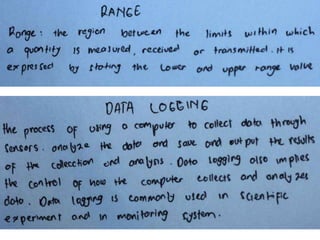 RANGE
Range: the region between the limits within which
a quantity is measured, received or transmitted. It is
expressed by stating the lower and upper range value
DATA LOGGING
the process of using a computer to collect data through
sensors. analyze the data and save and output the results
of the colecction and analysis. Data logging also implies
the control of how the computer collects and analyzes
data. Data logging is commonly used in scientific
experiment and in monitoring system.